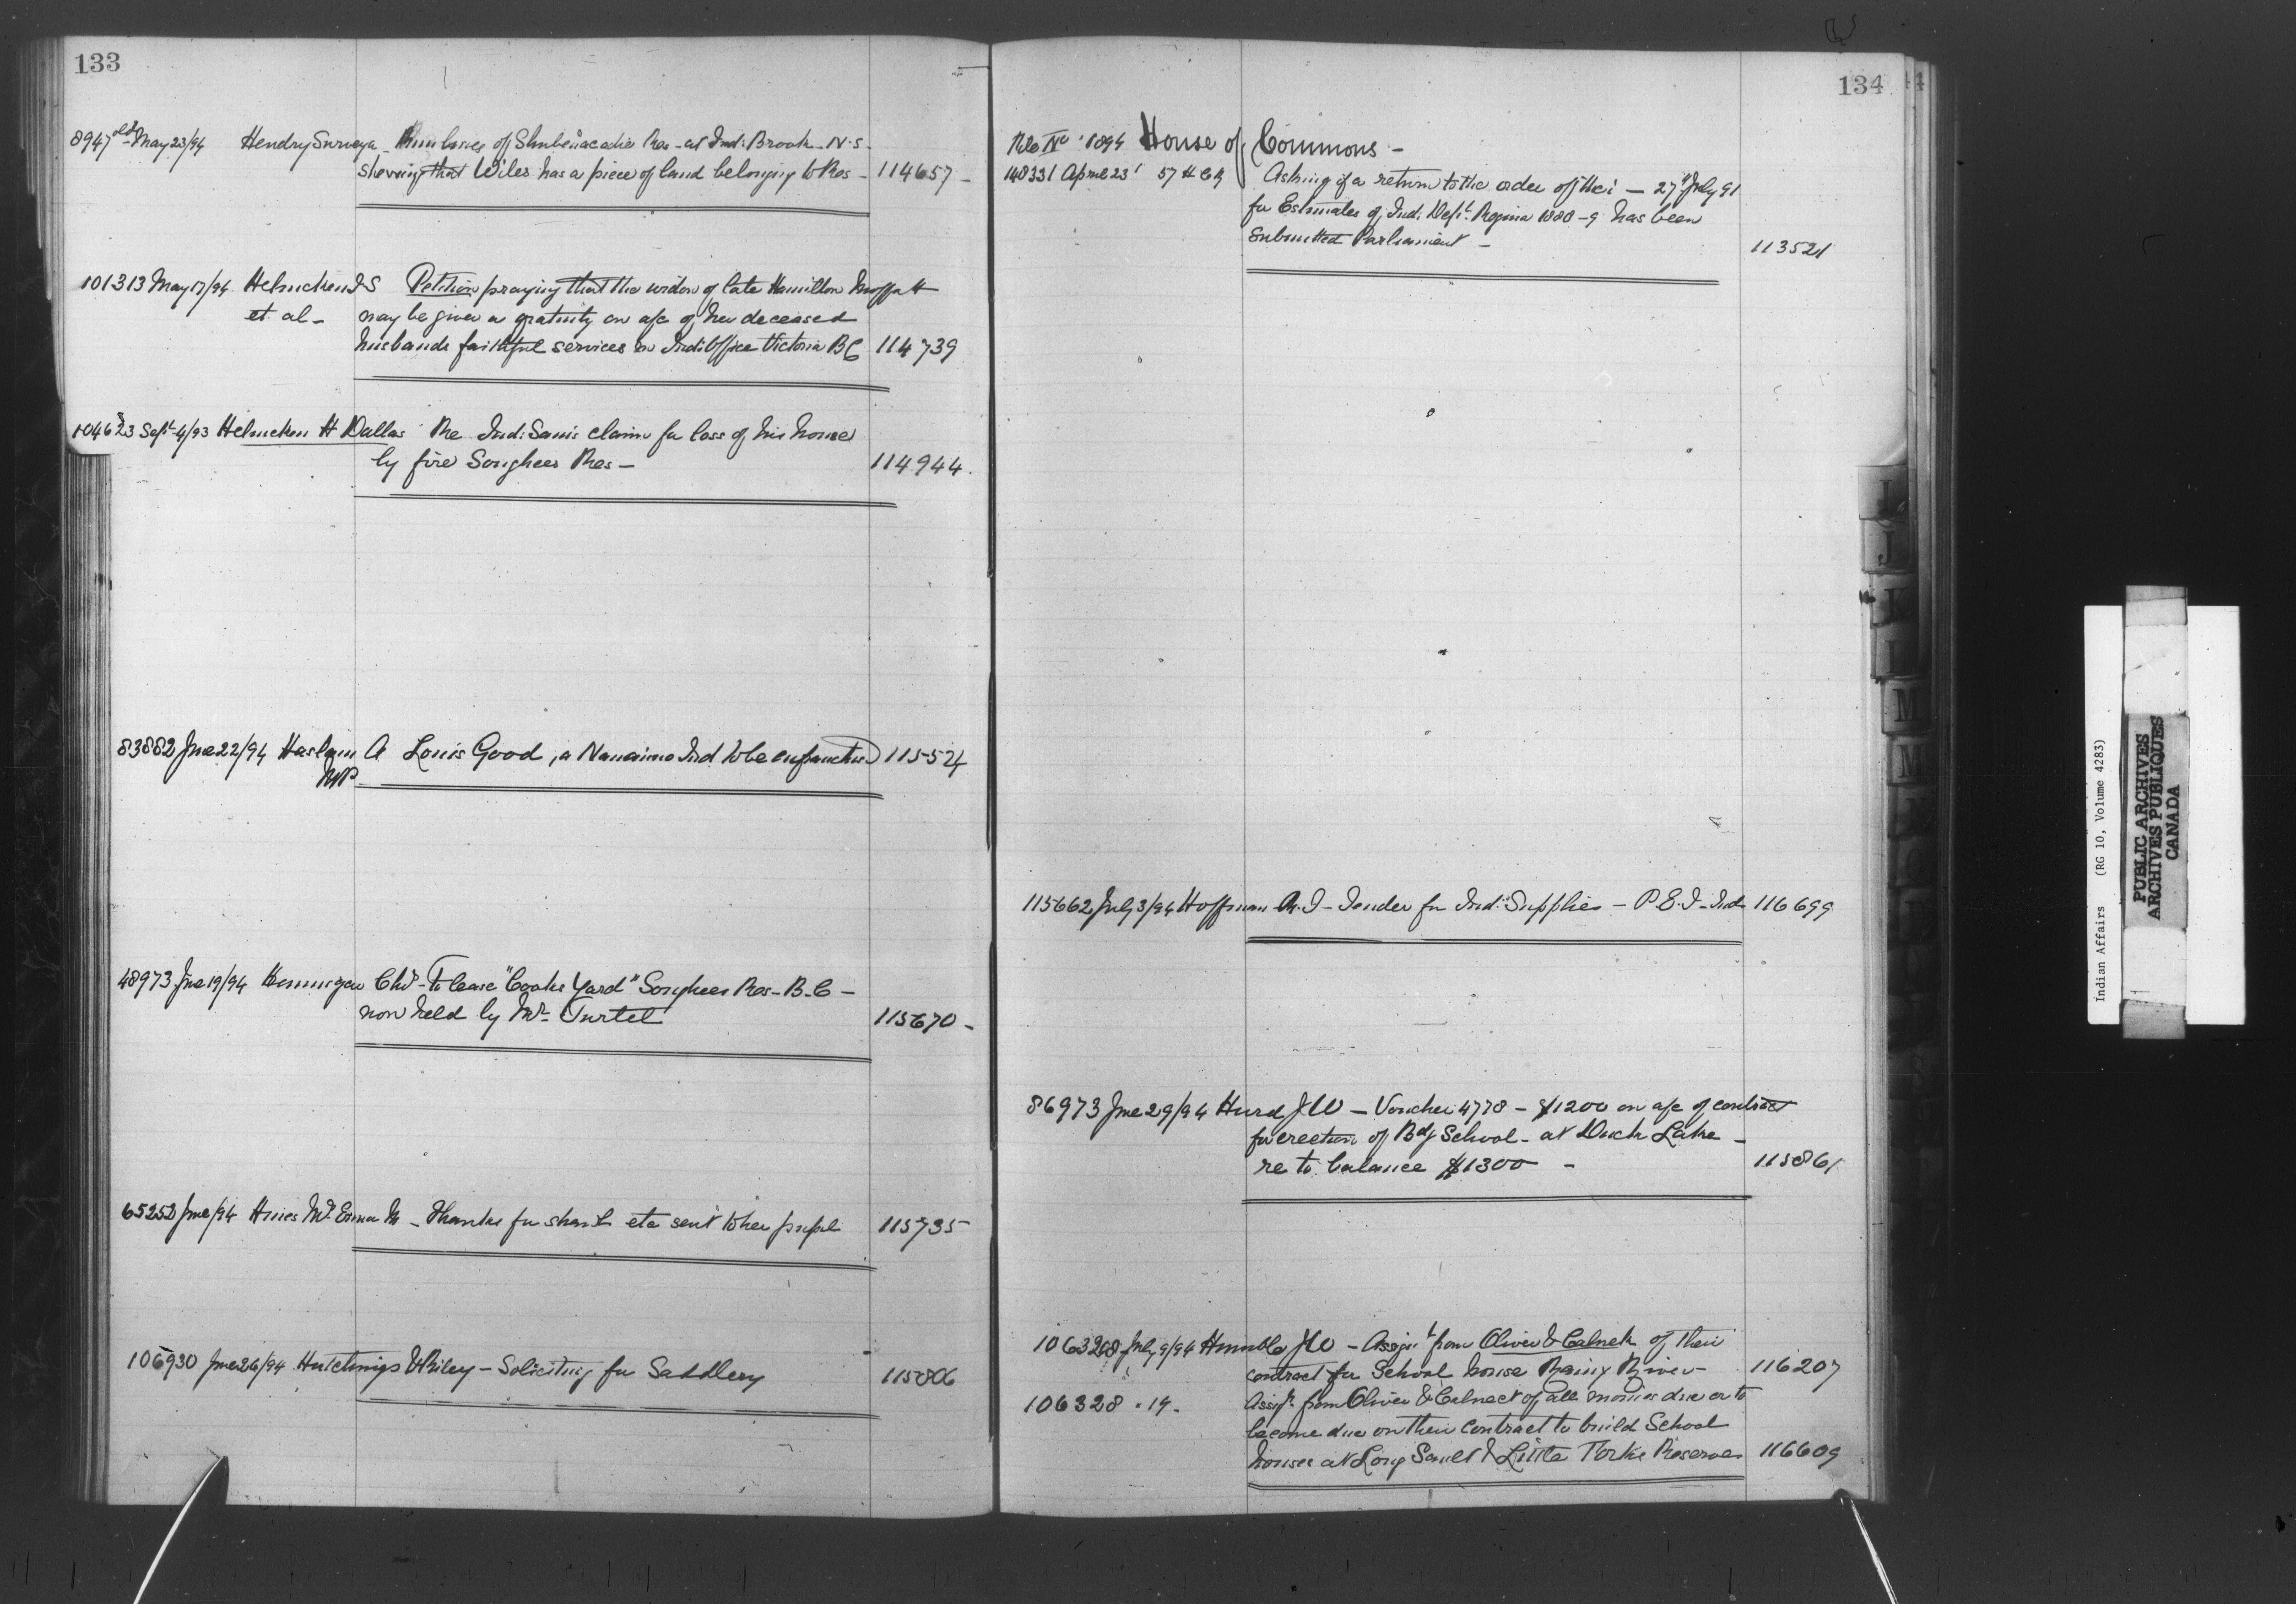 133
8947 old May 23/94 Hendry Surveyor - Run lines of Shubenacadie Res - at Ind: Brook - N.S.
shewing that Wiles has a piece of land belonging to Res - 114657 -
101313 May 17/94 Helmcken J S Petition praying that the widow of late Hamilton Moffatt
et al - may be given a gratuity on a/c of her deceased
husbands faithful services in Ind: Office Victoria BC 114739
Sept 4/93 Helmcken H Dallas Re Ind: Sam's claim for loss of his house
by fire Songhees Res - 114944.
83882 Jne 22/94 Haslam A Louis Good, a Nanaimo Ind to be enfranchised 115524
MP -
48973 Jne 19/94 Chs - To lease "Cooks Yard" Songhees Res - B.C -
now held by Mr. Turtel 115670 -
65252 Jne /94 Hines Emma M - Thanks for etc sent to her pupil 115735
106930 Jne 26/94 Hutchings & Riley - Soliciting for Saddlery 115806
134
File No 1894 House of Commons -
148331 April 23 57 Asking if a return to the order of the - 27th July 91
for Estimates of Ind. Dept. Regina 1888-9 has been
submitted Parliament - 113521
115662 July 3/94 Hoffman - Tender for Ind: Supplies - P.E.I - Ind 116699
86973 Jne 29/94 Hurd J W - Voucher 4778 - $1200 on a/c of contract
for erection of Bdg School - at Duck Lake -
re to balance $1300 - 115861
106328 July 9/94 Humble J W - Assignt from Oliver & Calnek of their
contract for School house Rainy River - 116207
106328 " 19 - Assignt from Oliver & Calneck of all monies due or to
become due on their contract to build School
houses at Long Sault & Little Forks Reserves 116609
I
J
K
L
M
M
Indian Affairs (RG 10, Volume 4283)
PUBLIC ARCHIVES
ARCHIVES PUBLIQUES
CANADA